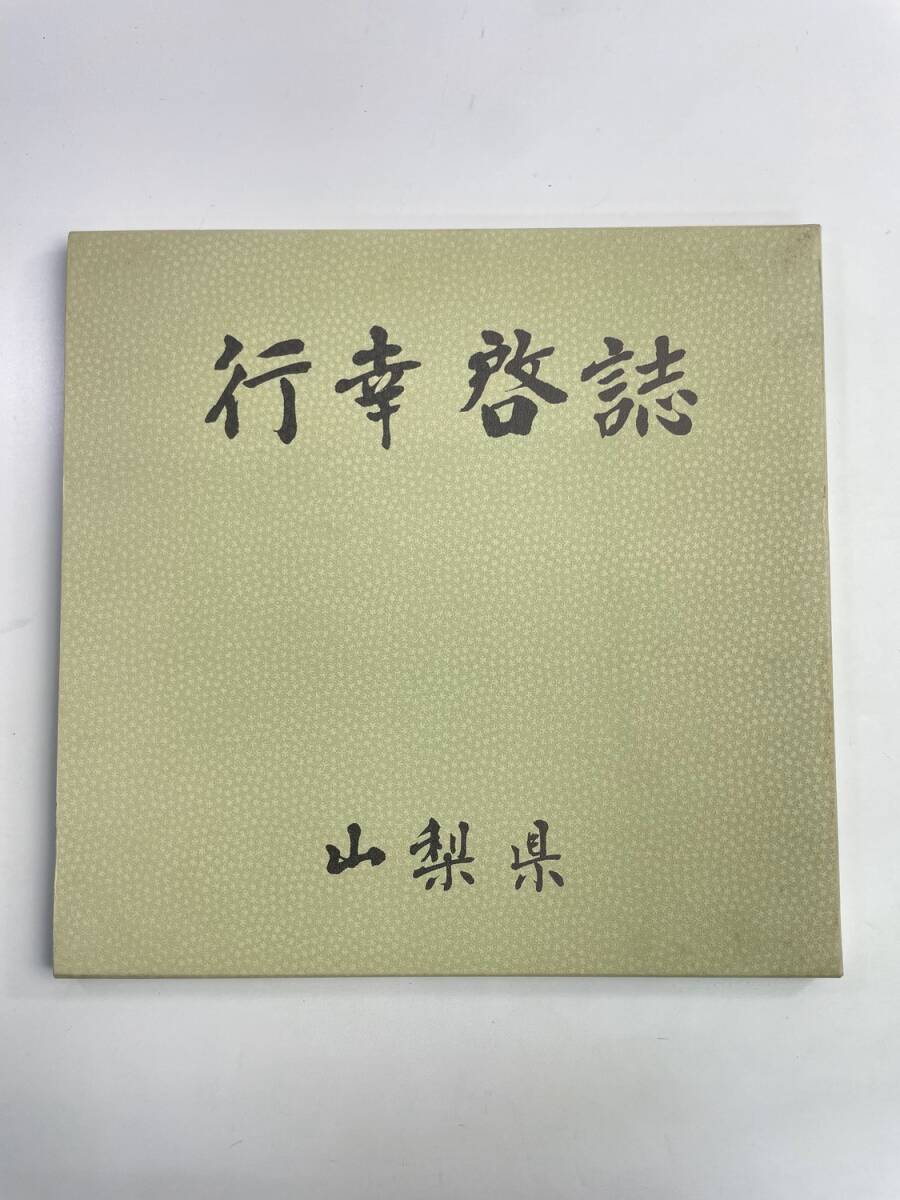 行幸啓誌
山梨県